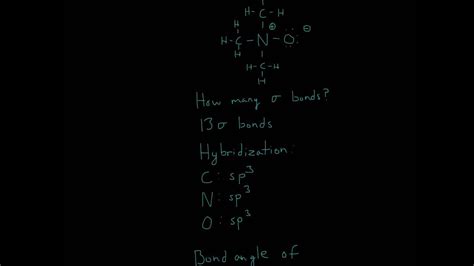 H-C-H
H ⊕ ⊖
H-C-N-O:
H
H-C-H
H
How many σ bonds?
13σ bonds
Hybridization:
C: sp³
N: sp³
O: sp³
Bond angle of